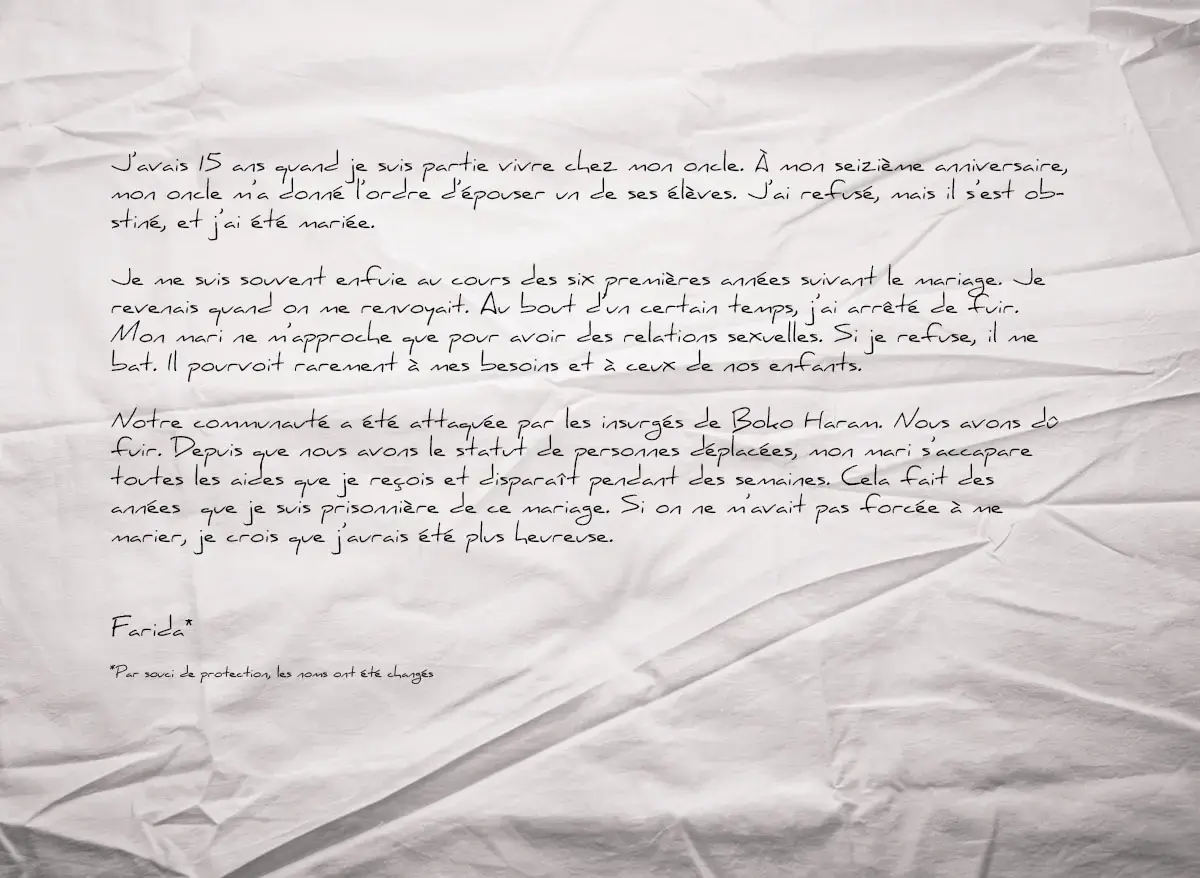 J'avais 15 ans quand je suis partie vivre chez mon oncle. À mon seizième anniversaire,
mon oncle m'a donné l'ordre d'épouser un de ses élèves. J'ai refusé, mais il s'est ob-
stiné, et j'ai été mariée.
Je me suis souvent enfuie au cours des six premières années suivant le mariage. Je
revenais quand on me renvoyait. Au bout d'un certain temps, j'ai arrêté de fuir.
Mon mari ne m'approche que pour avoir des relations sexuelles. Si je refuse, il me
bat. Il pourvoit rarement à mes besoins et à ceux de nos enfants.
Notre communauté a été attaquée par les insurgés de Boko Haram. Nous avons dû
fuir. Depuis que nous avons le statut de personnes déplacées, mon mari s'accapare
toutes les aides que je reçois et disparaît pendant des semaines. Cela fait des
années que je suis prisonnière de ce mariage. Si on ne m'avait pas forcée à me
marier, je crois que j'aurais été plus heureuse.
Farida*
*Par souci de protection, les noms ont été changés